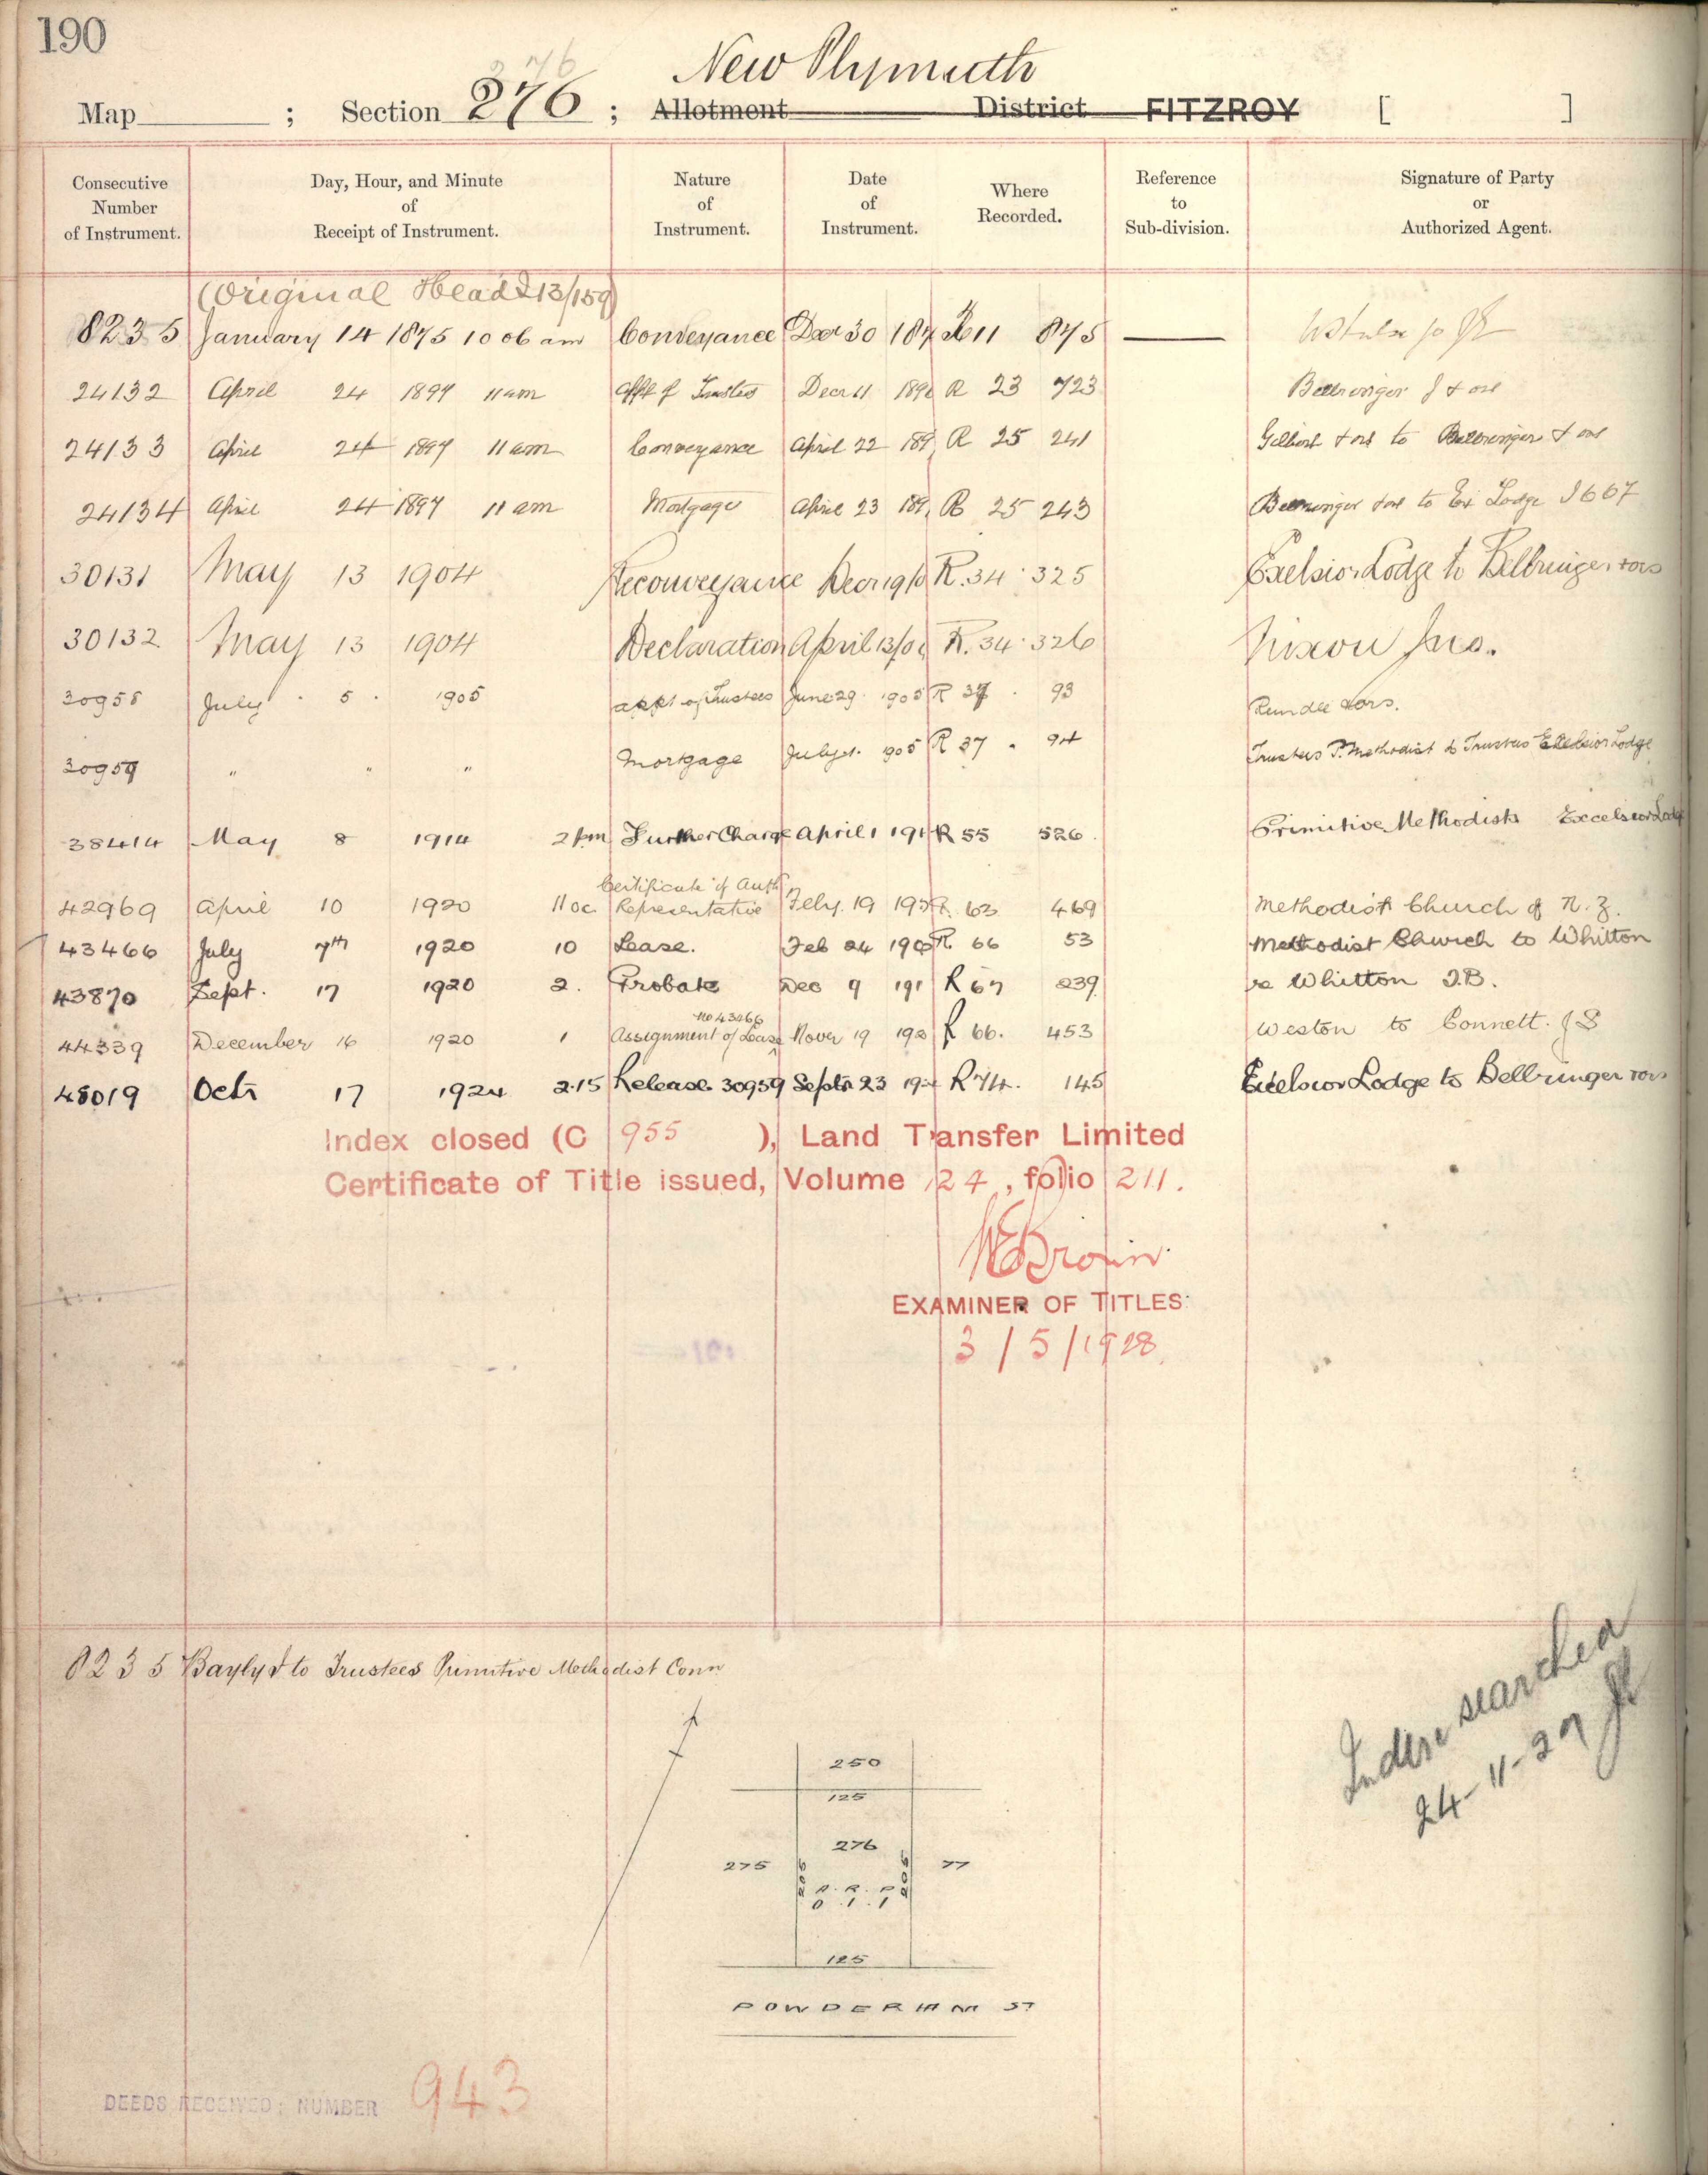 190
New Plymouth
276
Map ; Section 276 ; Allotment District FITZROY [ ]
Consecutive Number of Instrument. Day, Hour, and Minute of Receipt of Instrument. Nature of Instrument. Date of Instrument. Where Recorded. Reference to Sub-division. Signature of Party or Authorized Agent.
(Original Head 13/159)
8235 January 14 1875 10 06 am Conveyance Decr 30 187 11 875
24132 April 24 1897 11 am Appt of Trustees Decr 11 189 R 23 723 Bellringer J & ors
24133 April 24 1897 11 am Conveyance April 22 189 R 25 241 Gilbert & ors to Bellringer & ors
24134 April 24 1897 11 am Mortgage April 23 189 R 25 243 Bellringer & ors to Ex Lodge
30131 May 13 1904 Reconveyance Decr 19/0 R. 34 325 Excelsior Lodge to Bellringer & ors
30132 May 13 1904 Declaration April 13/0 R. 34 326 Nixon Jas.
30958 July 5 1905 appt of Trustees June 29 1905 R 37 93 Rundle & ors.
30959 " " " Mortgage July 1. 1905 R 37 94 Trustees P. Methodist to Trustees Excelsior Lodge
38414 May 8 1914 2 pm Further Charge April 1 191 R 55 526 Primitive Methodists Excelsior Lodge
Certificate of Auth
42969 April 10 1920 11 oc Representative Feby. 19 19 R. 63 469 Methodist Church of N. Z.
43466 July 7th 1920 10 Lease. Feb 24 19 R. 66 53 Methodist Church to Whitton
43870 Sept. 17 1920 2. Probate Dec 9 191 R 67 239 re Whitton J.B.
No 43466
44339 December 16 1920 1 Assignment of Lease Novr 19 192 R 66. 453 Weston to Connett. J S
48019 Octr 17 1924 2.15 Release 30959 Septr 23 192 R 74. 145 Excelsior Lodge to Bellringer & ors
Index closed (C 955 ), Land Transfer Limited
Certificate of Title issued, Volume 124, folio 211.
Brown
EXAMINER OF TITLES
3/5/1928
8235 Bayly J to Trustees Primitive Methodist Conn
Index searched
24-11-27
250
125
276
275
77
205
205
A. R. P
0. 1. 1
125
POWDERHAM ST
DEEDS RECEIVED; NUMBER 943